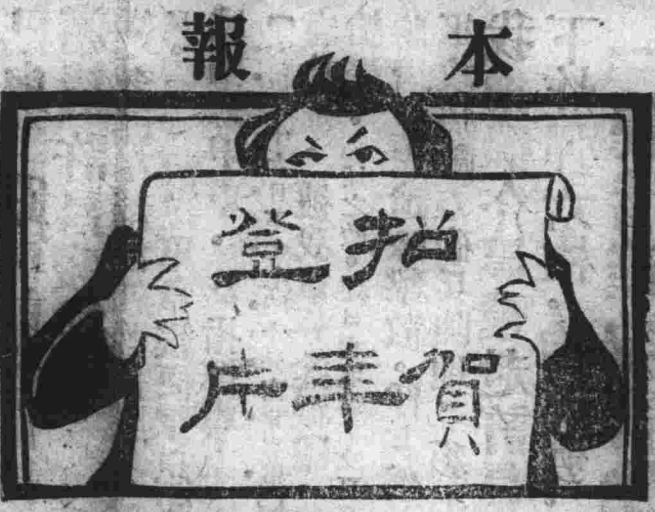 本報
招登
賀年片